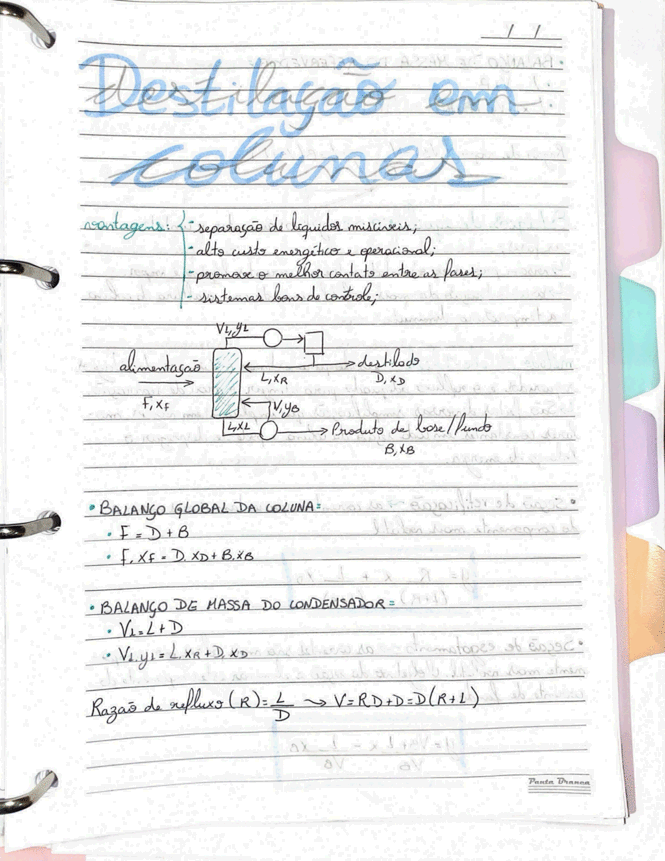 / /
Destilação em
colunas
vantagens: - separação de líquidos miscíveis;
- alto custo energético e operacional;
- promove o melhor contato entre as fases;
- sistemas bons de controle;
V1,y1
alimentação
F,xF
destilado
D,xD
L,xR
V,yB
L,xL
Produto de base/fundo
B,xB
• BALANÇO GLOBAL DA COLUNA:
• F = D + B
• F.xF = D.xD + B.xB
• BALANÇO DE MASSA DO CONDENSADOR:
• V1 = L + D
• V1.y1 = L.xR + D.xD
Razão de refluxo (R) = L/D → V = RD + D = D(R+1)
Ponto Branco